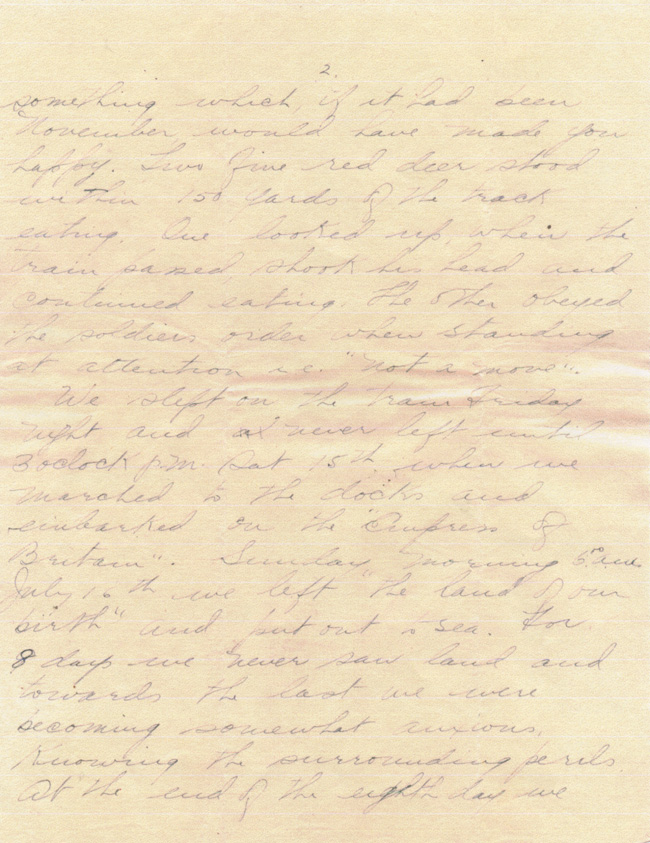 2.
something which, if it had been
November would have made you
happy. Two fine red deer stood
within 150 yards of the track
eating. One looked up, when the
train passed, shook his head and
continued eating. The other obeyed
the soldiers order when standing
at attention i.e. "Not a move".
We slept on the train Friday
night and never left until
3 oclock p.m. Sat 15th when we
marched to the docks and
embarked on the "Empress of
Britain". Sunday morning 5 a.m.
July 16th we left "the land of our
birth" and put out to sea. For
8 days we never saw land and
towards the last we were
becoming somewhat anxious,
Knowing the surrounding perils.
At the end of the eighth day we